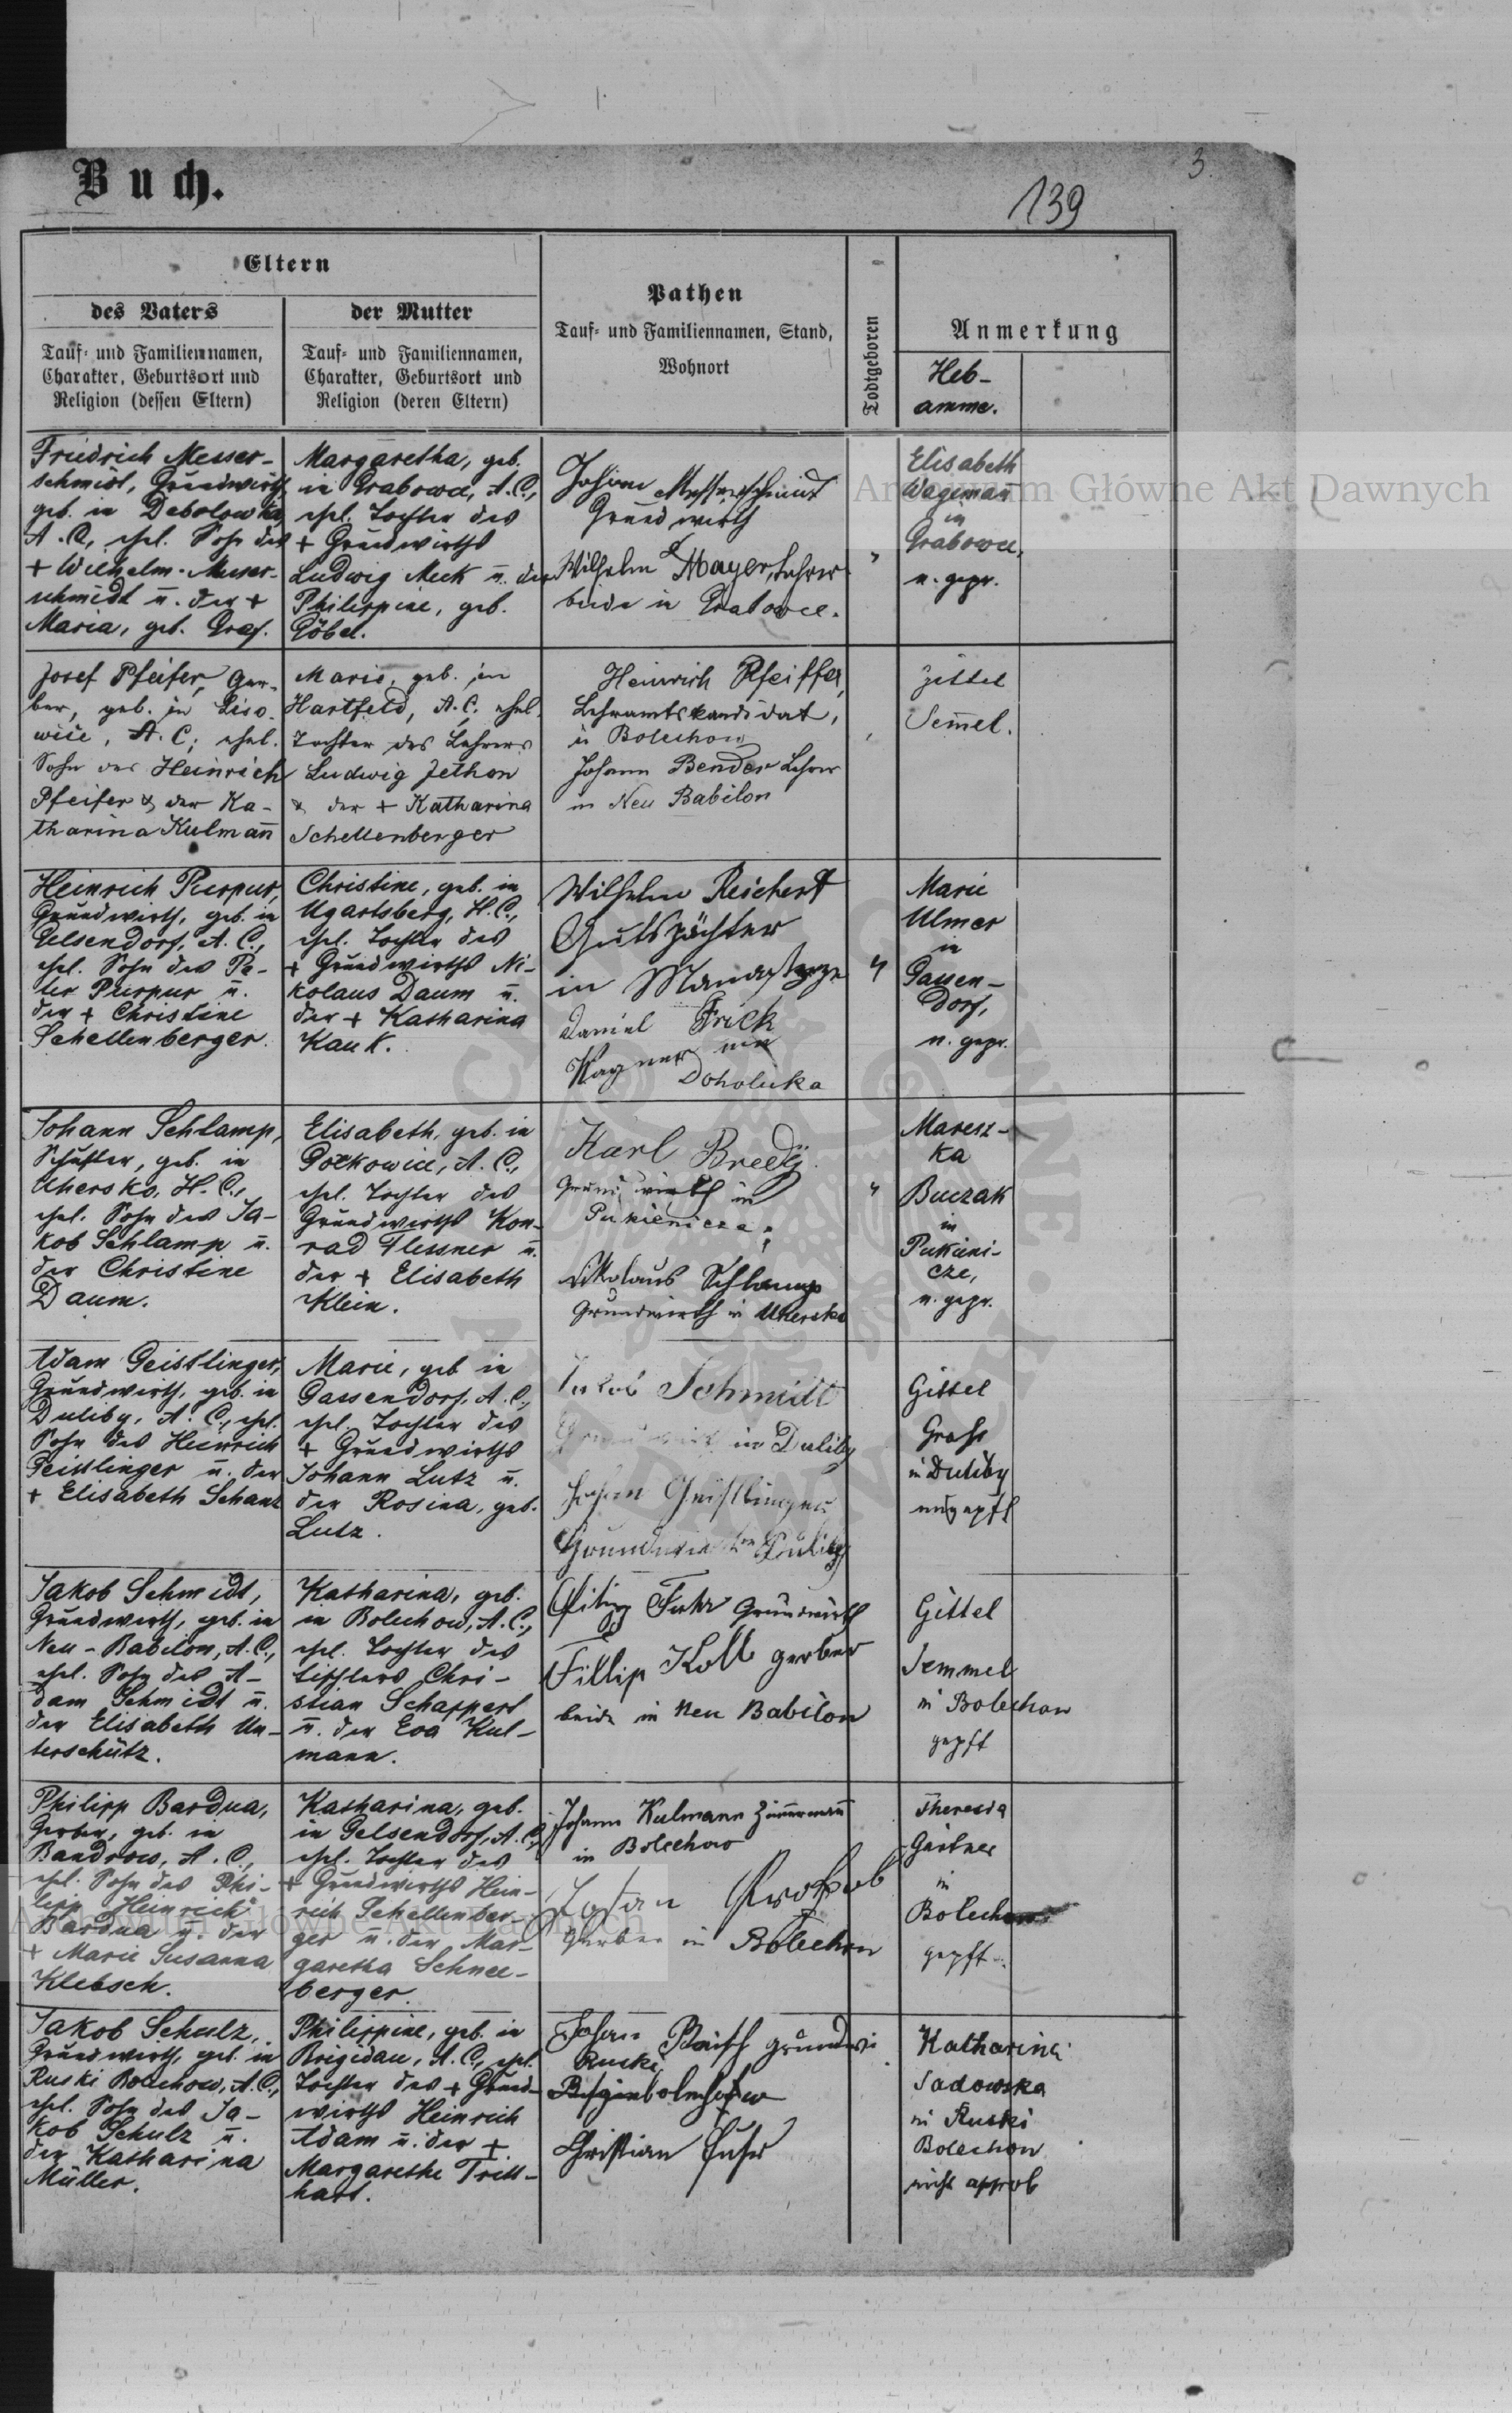 Buch.
3.
139
Eltern
des Vaters
Tauf- und Familiennamen,
Charakter, Geburtsort und
Religion (dessen Eltern)
der Mutter
Tauf- und Familiennamen,
Charakter, Geburtsort und
Religion (deren Eltern)
Pathen
Tauf- und Familiennamen, Stand,
Wohnort
Todtgeboren
Anmerkung
Heb-
amme.
Friedrich Messer-
schmidt, Grundwirth,
geb. in Debolowka,
A.C., ehel. Sohn des
+ Wilhelm Messer-
schmidt u. der +
Maria, geb. Graf.
Margaretha, geb.
in Grabowce, A.C.,
ehel. Tochter des
+ Grundwirths
Ludwig Meck u. der
Philippine, geb.
Göbel.
Johann Messerschmidt
Grundwirth
Wilhelm Mayer, Lehrer
beide in Grabowce.
"
Elisabeth
Wagemañ
in
Grabowce,
n. gepr.
Archiwum Główne Akt Dawnych
Josef Pfeifer, Ger-
ber, geb. in Liso-
wice, A.C; ehel.
Sohn des Heinrich
Pfeifer & der Ka-
tharina Kulmañ
Marie, geb. in
Hartfeld, A.C, ehel.
Tochter des Lehrers
Ludwig Jethon
& der + Katharina
Schellenberger
Heinrich Pfeiffer,
Lehramtskandidat,
in Bolechow
Johann Bender Lehrer
in Neu Babilon
Zittel
Sem̄el.
Heinrich Purpur,
Grundwirth, geb. in
Gelsendorf, A.C.,
ehel. Sohn des Pe-
ter Purpur u.
der + Christine
Schellenberger.
Christine, geb. in
Ugartsberg, H.C.,
ehel. Tochter des
+ Grundwirths Ni-
kolaus Daum u.
der + Katharina
Kauk.
Wilhelm Reichert
Gutspächter
in
Daniel Frick
Wagner in
Doholuka
"
Marie
Ulmer
in
Gassen-
dorf,
n. gepr.
Johann Schlamp,
Schuster, geb. in
Uhersko, H.C.,
ehel. Sohn des Ja-
kob Schlamp u.
der Christine
Daum.
Elisabeth, geb. in
Gołkowice, A.C.,
ehel. Tochter des
Grundwirths Kon-
rad Flessner u.
der + Elisabeth
Klein.
Karl Bredÿ
Grundwirth in
Pukienicze;
Nikolaus Schlamp
Grundwirth in Uhersko
"
Maresz-
ka
Buczak
in
Pukieni-
cze,
n. gepr.
Adam Geistlinger,
Grundwirth, geb. in
Duliby, A.C., ehel.
Sohn des Heinrich
Geistlinger u. der
+ Elisabeth Schanz
Marie, geb in
Gassendorf, A.C.,
ehel. Tochter des
+ Grundwirths
Johann Lutz u.
der Rosina, geb.
Lutz.
Jakob Schmidt
Grundwirth in Duliby
Johan Geistlinger
Grundwirth in Duliby
Gittel
Grohs
in Duliby
ungepft
Jakob Schmidt,
Grundwirth, geb. in
Neu-Babilon, A.C.,
ehel. Sohn des A-
dam Schmidt u.
der Elisabeth Un-
terschütz.
Katharina, geb.
in Bolechow, A.C.,
ehel. Tochter des
Tischlers Chri-
stian Schappert
u. der Eva Kul-
mann.
Filipp Fuhr Grundwirth
Fillip Kolb gerber
beide in Neu Babilon
Gittel
Semmel
in Bolechow
gepft
Philipp Bardua,
Gerber, geb. in
Bandrow, A.C.,
ehel. Sohn des Phi-
lipp Heinrich
Bardua u. der
+ Marie Susanna
Klebsch.
Katharina, geb.
in Gelsendorf, A.C.,
ehel. Tochter des
+ Grundwirths Hein-
rich Schellenber-
ger u. der Mar-
garetha Schnee-
berger.
Johann Kulmann Zimmermañ
in Bolechow
Johan
Gerber in Bolechow
Theresia
Gärtner
in
Bolechow
gepft.
Archiwum Główne Akt Dawnych
Jakob Schulz,
Grundwirth, geb. in
Ruski Bolechow, A.C.,
ehel. Sohn des Ja-
kob Schulz u.
der Katharina
Müller.
Philippine, geb. in
Brigidau, A.C., ehel.
Tochter des + Grund-
wirths Heinrich
Adam u. der +
Margarethe Tritt-
hart.
Johan grundwi
Ruski
Christian Fuhr
Katharina
Sadowska
in Ruski
Bolechow
nicht approb